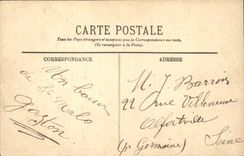 CARTE POSTALE
Tous les Pays étrangers n'acceptent pas la Correspondance au recto.
(Se renseigner à la Poste).
CORRESPONDANCE
ADRESSE
Un baiser
de St Malo
Gaston
M. J Barrois
22 rue Villeneuve
Alfortville
(pr Germaine)
Seine